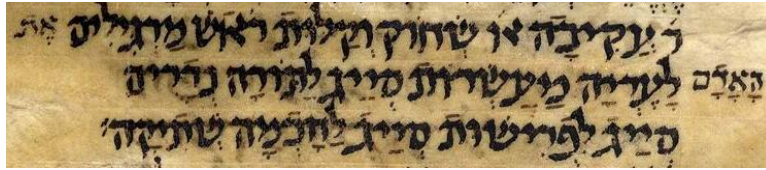 ר עקיבה או שחוק וקלות ראש מרגילים את
האדם לעריה מעשרות סייג לתורה נדרים
סייג לפרישות סייג לחכמה שתיקה׳